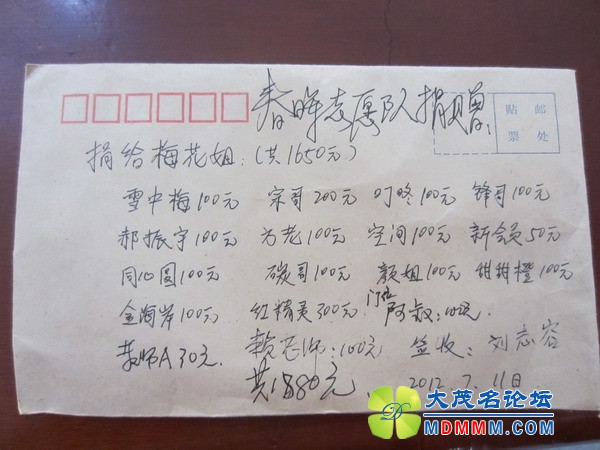 春晖志愿队捐赠:
贴 邮
票 处
捐给梅花姐:(共1650元)
雪中梅100元 宋哥200元 叮咚100元 锋哥100元
郝振宇100元 方老100元 空间100元 新会员50元
同心圆100元 碳哥100元 颜姐100元 甜甜橙100元
金海岸100元 红精灵300元 门位阿叔:100元.
教师A 30元. 赖老师:100元 签收: 刘志容
共1880元 2012.7.11日
大茂名论坛
MDMMM.COM